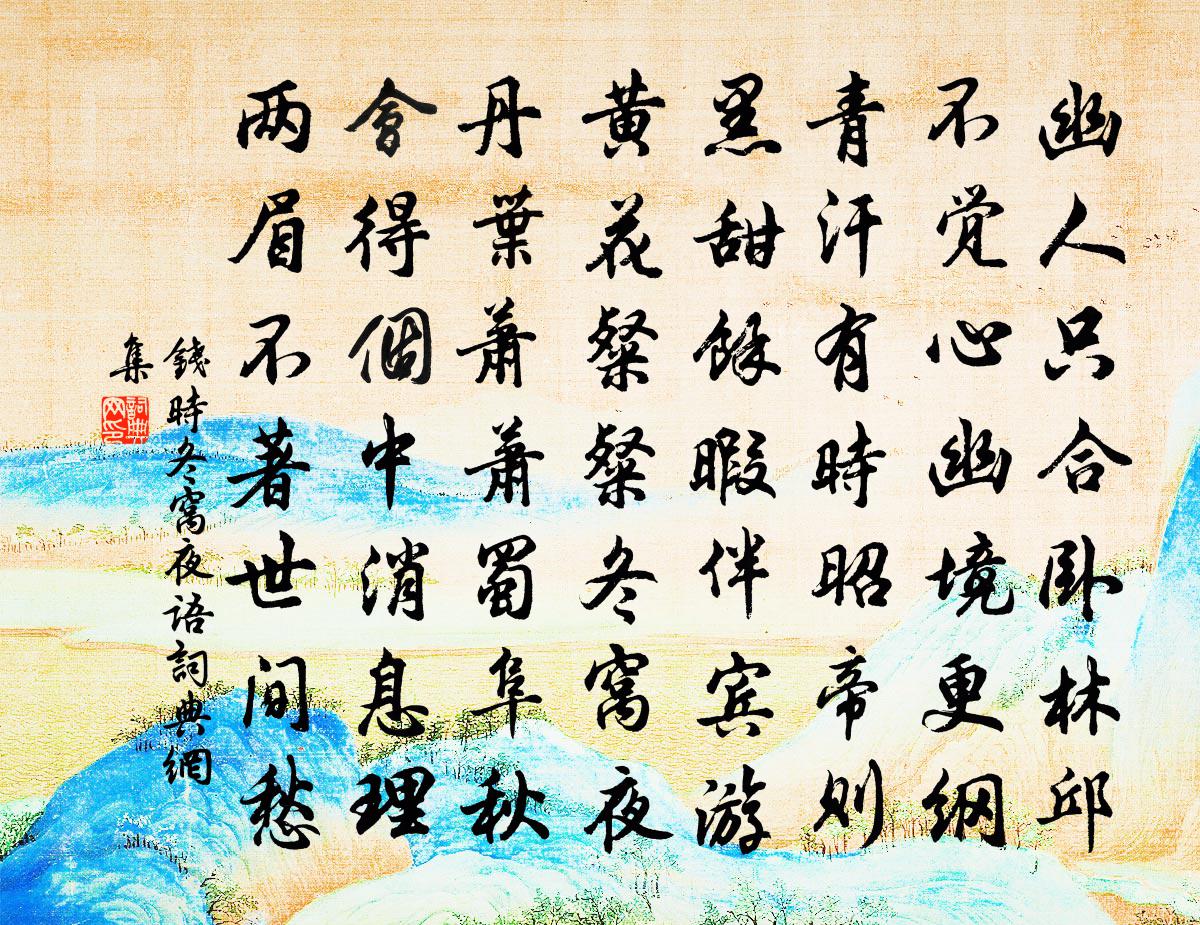 幽人只合卧林邱
不觉心幽境更纲
青汗有時昭帝则
黑甜餘暇伴宾游
黄花粲粲冬窩夜
丹葉萧萧蜀阜秋
會得個中消息理
两眉不著世间愁
錢時冬窩夜語詞典網
集
詞典网印